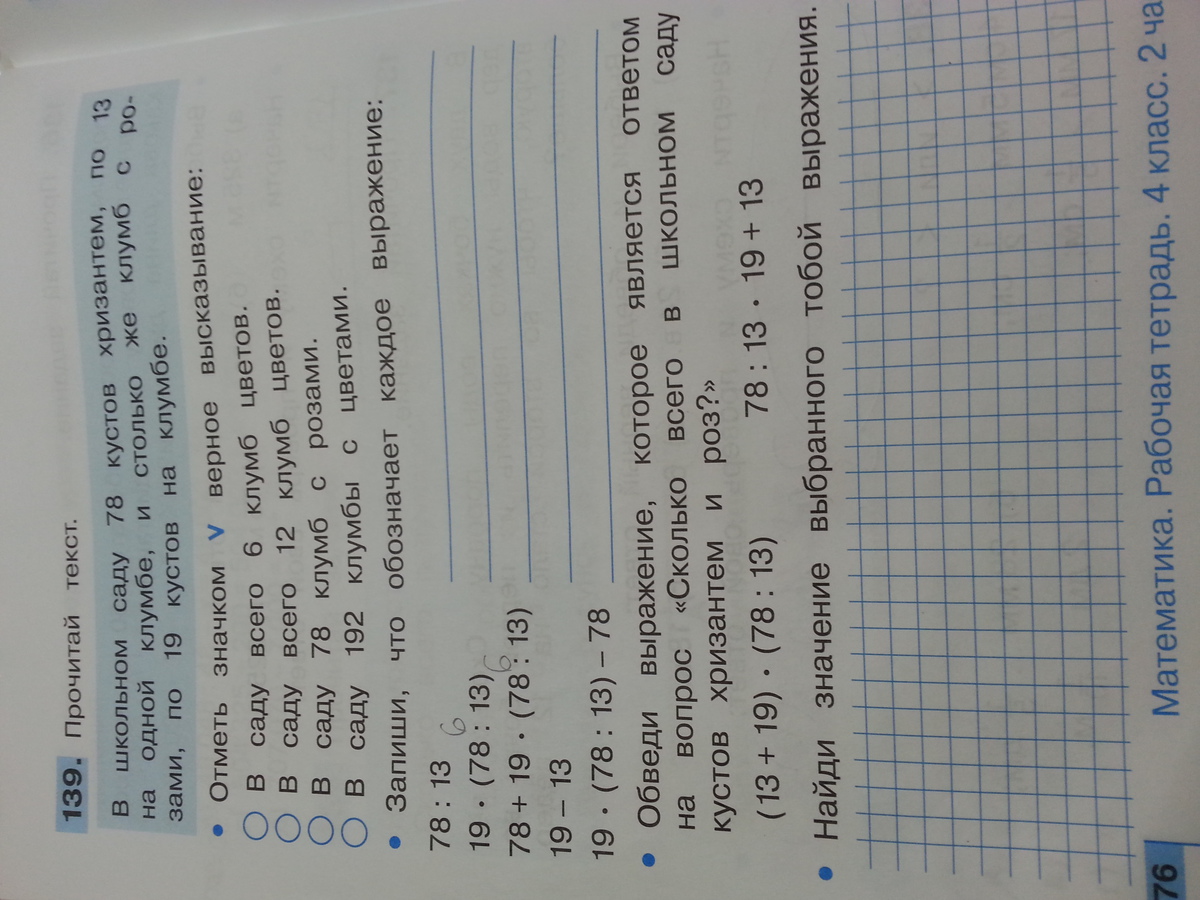 139. Прочитай текст.
В школьном саду 78 кустов хризантем, по 13
на одной клумбе, и столько же клумб с ро-
зами, по 19 кустов на клумбе.
• Отметь значком v верное высказывание:
В саду всего 6 клумб цветов.
В саду всего 12 клумб цветов.
В саду 78 клумб с розами.
В саду 192 клумбы с цветами.
• Запиши, что обозначает каждое выражение:
78 : 13
19 · (78 : 13) 6
78 + 19 · (78 : 13) 6
19 – 13
19 · (78 : 13) – 78
• Обведи выражение, которое является ответом
на вопрос «Сколько всего в школьном саду
кустов хризантем и роз?»
(13 + 19) · (78 : 13) 78 : 13 · 19 + 13
• Найди значение выбранного тобой выражения.
76 Математика. Рабочая тетрадь. 4 класс. 2 ча